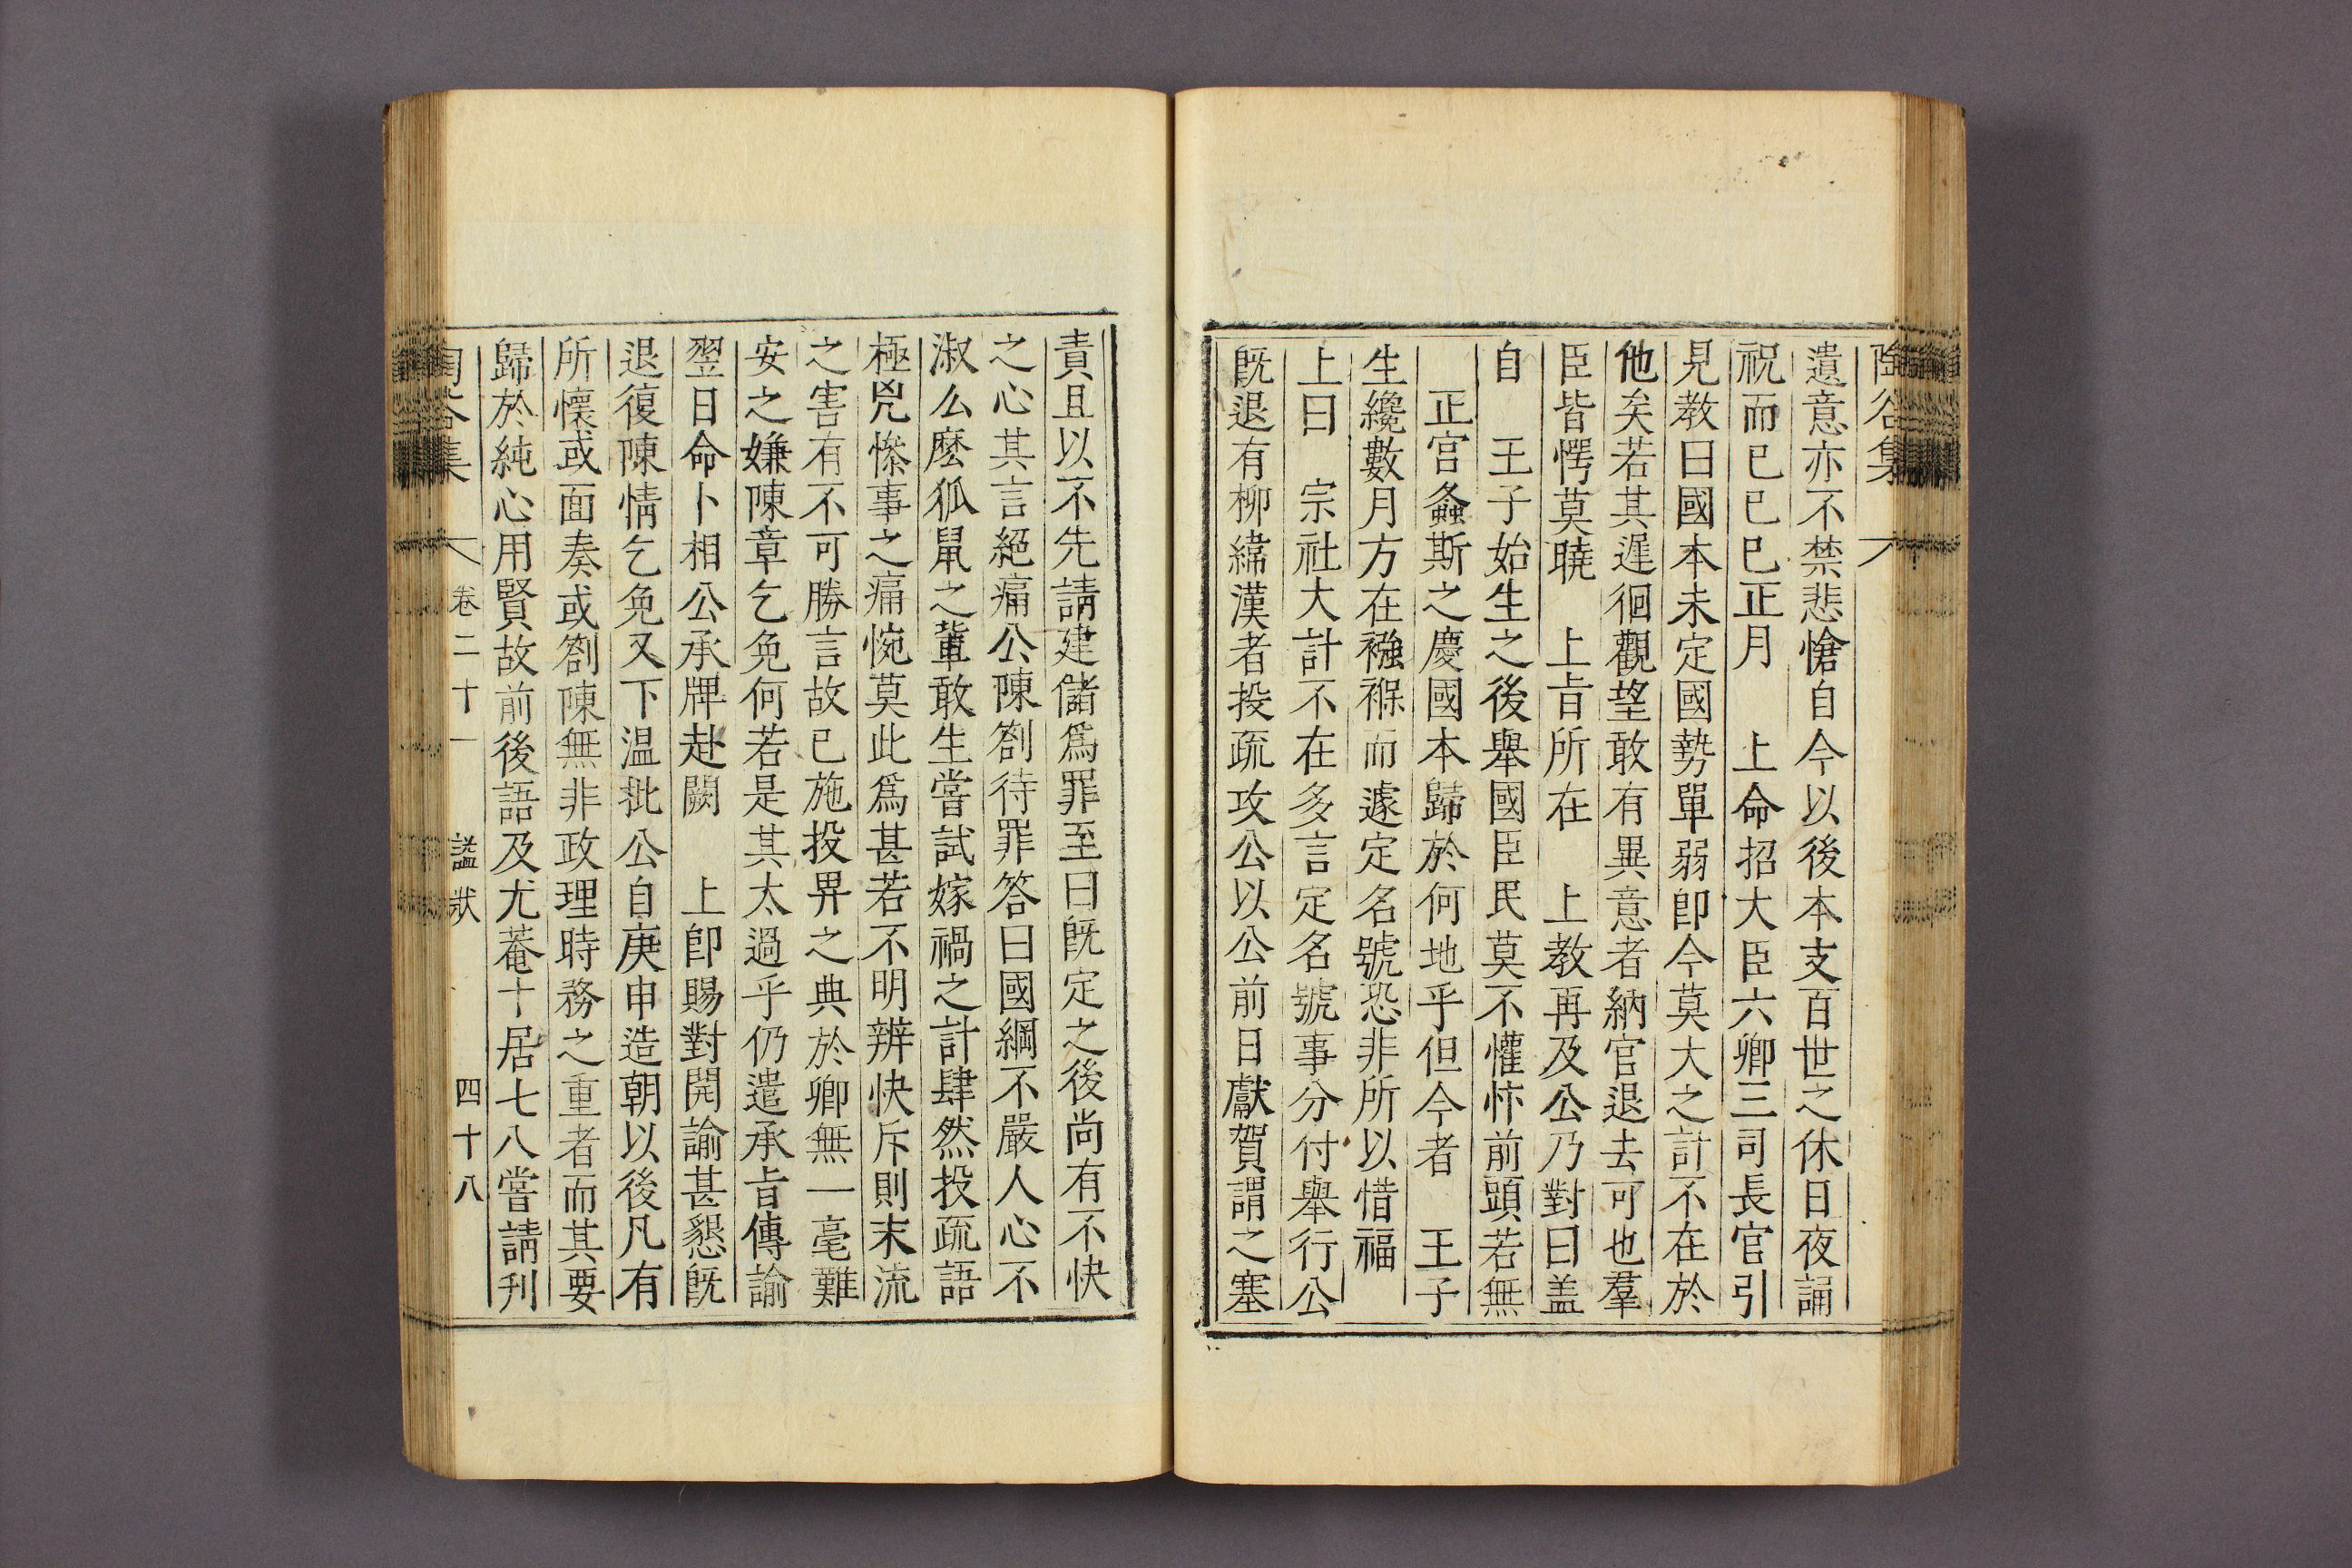 陶谷集
遺意亦不禁悲愴自今以後本支百世之休日夜誦
祝而已己巳正月　上命招大臣六卿三司長官引
見教曰國本未定國勢單弱卽今莫大之計不在於
他矣若其遲徊觀望敢有異意者納官退去可也羣
臣皆愕莫曉　上旨所在　上教再及公乃對曰盖
自　王子始生之後舉國臣民莫不懽忭前頭若無
正宮螽斯之慶國本歸於何地乎但今者　王子
生纔數月方在襁褓而遽定名號恐非所以惜福
上曰　宗社大計不在多言定名號事分付舉行公
旣退有柳緯漢者投疏攻公以公前日獻賀謂之塞
責且以不先請建儲爲罪至曰旣定之後尚有不快
之心其言絕痛公陳劄待罪答曰國綱不嚴人心不
淑么麽狐鼠之輩敢生嘗試嫁禍之計肆然投疏語
極兇慘事之痛惋莫此爲甚若不明辨快斥則末流
之害有不可勝言故已施投畀之典於卿無一毫難
安之嫌陳章乞免何若是其太過乎仍遣承旨傳諭
翌日命卜相公承牌赴闕　上卽賜對開諭甚懇旣
退復陳情乞免又下温批公自庚申造朝以後凡有
所懷或面奏或劄陳無非政理時務之重者而其要
歸於純心用賢故前後語及尤菴十居七八嘗請刋
陶谷集　卷二十一　諡狀　四十八